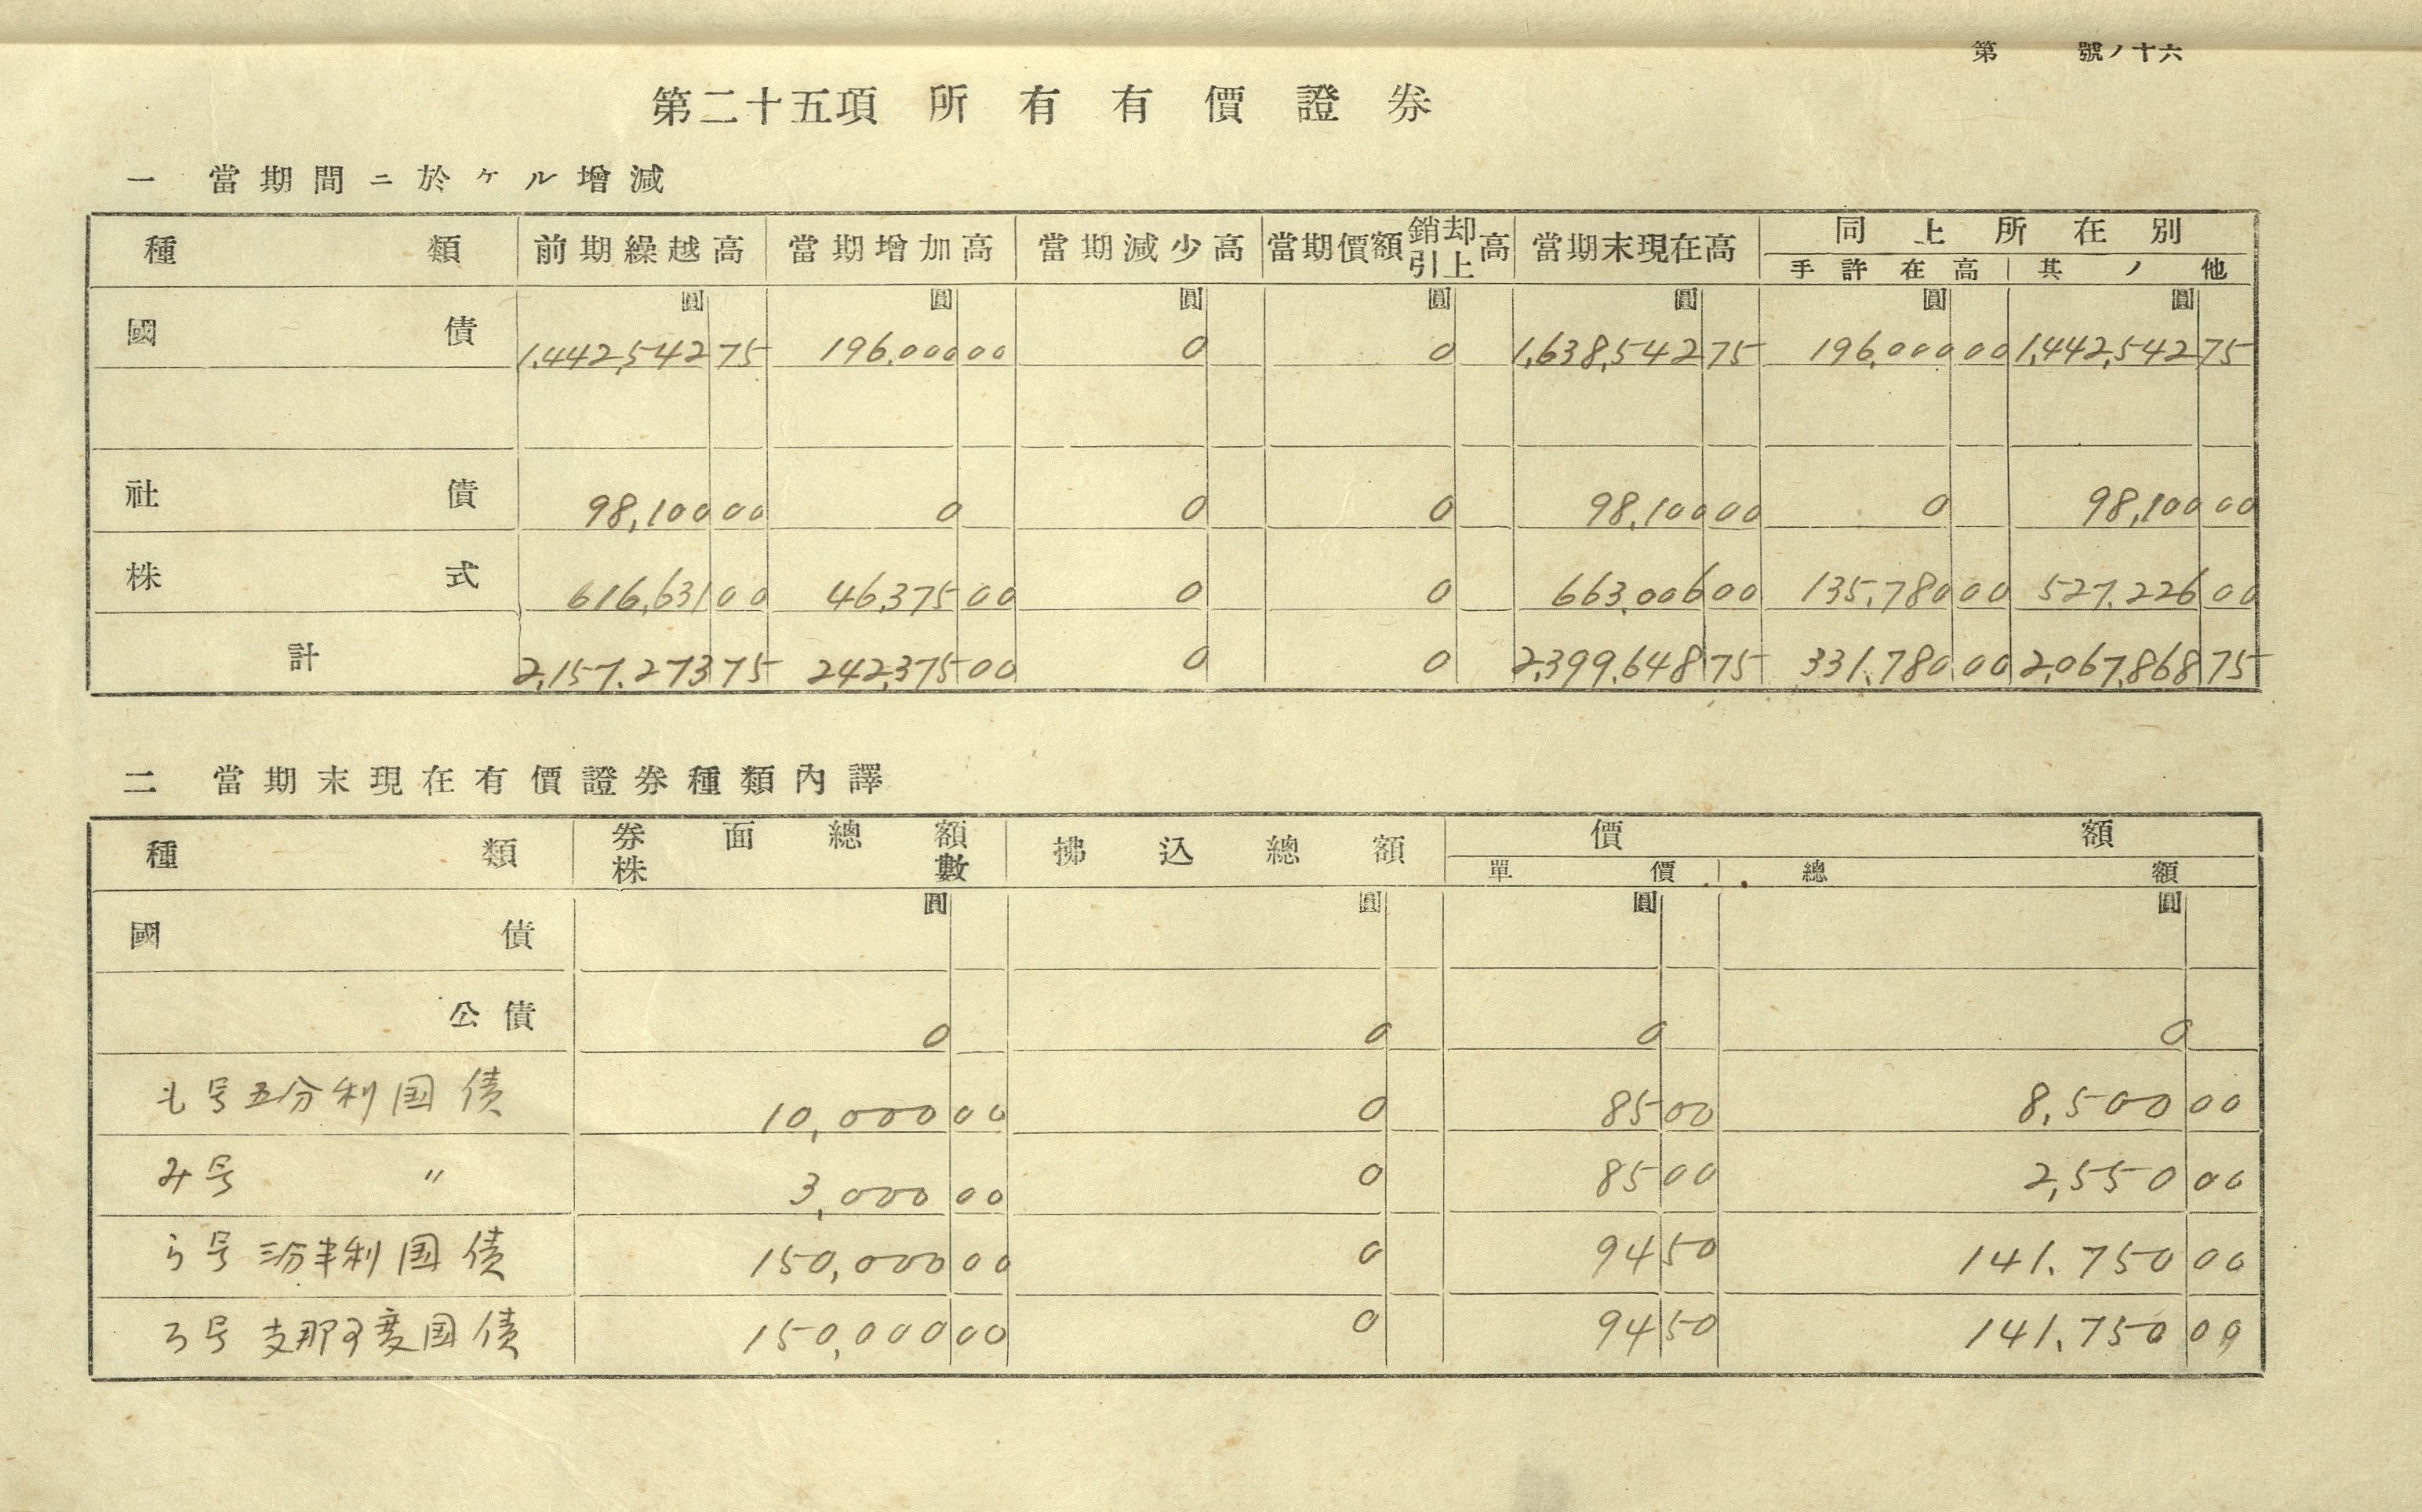 第 號ノ十六
第二十五項 所有有價證券
一 當期間ニ於ケル增減
種類 前期繰越高 當期增加高 當期減少高 當期價額銷却引上高 當期末現在高 同上所在別
手許在高 其ノ他
圓 圓 圓 圓 圓 圓 圓
國債 1,442,542 75 196,000 00 0 0 1,638,542 75 196,000 00 1,442,542 75
社債 98,100 00 0 0 0 98,100 00 0 98,100 00
株式 616,631 00 46,375 00 0 0 663,006 00 135,780 00 527,226 00
計 2,157,273 75 242,375 00 0 0 2,399,648 75 331,780 00 2,067,868 75
二 當期末現在有價證券種類內譯
種類 券面總額 株數 拂込總額 價額
單價 總額
圓 圓 圓 圓
國債
公債 0 0 0 0
も号五分利国債 10,000 00 0 85 00 8,500 00
み号 〃 3,000 00 0 85 00 2,550 00
う号三分半利国債 150,000 00 0 94 50 141,750 00
ろ号支那事変国債 150,000 00 0 94 50 141,750 00